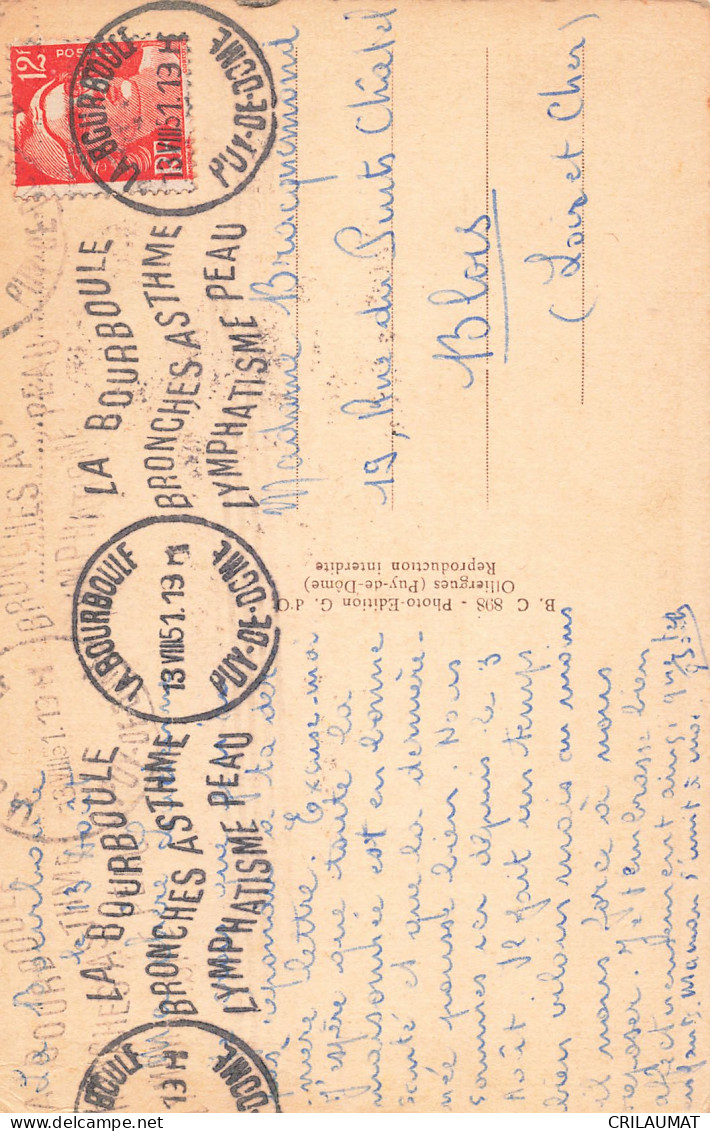 La Bourboule
le 13 Août
répondu à ta der-
nière lettre. Excuse-moi
J'espère que toute la
maisonnée est en bonne
santé et que la dernière-
née pousse bien. Nous
sommes ici depuis le 3
Août. Il fait un temps
bien vilain mais au moins
il nous force à nous
reposer. Je t'embrasse bien
affectueusement ainsi que tes
enfants. Maman s'unit à moi.
B. C 898 - Photo-Edition G. d'O
Olliergues (Puy-de-Dôme)
Reproduction interdite
12F
POSTES
RF
LA BOURBOULE
13 VIII 51.19 H
PUY-DE-DOME
LA BOURBOULE
BRONCHES ASTHME
LYMPHATISME PEAU
LA BOURBOULE
13 VIII 51.19 H
PUY-DE-DOME
LA BOURBOULE
BRONCHES ASTHME
LYMPHATISME PEAU
Madame Bracquemond
19, Rue du Puits Châtel
Blois
(Loir et Cher)
CRILAUMAT